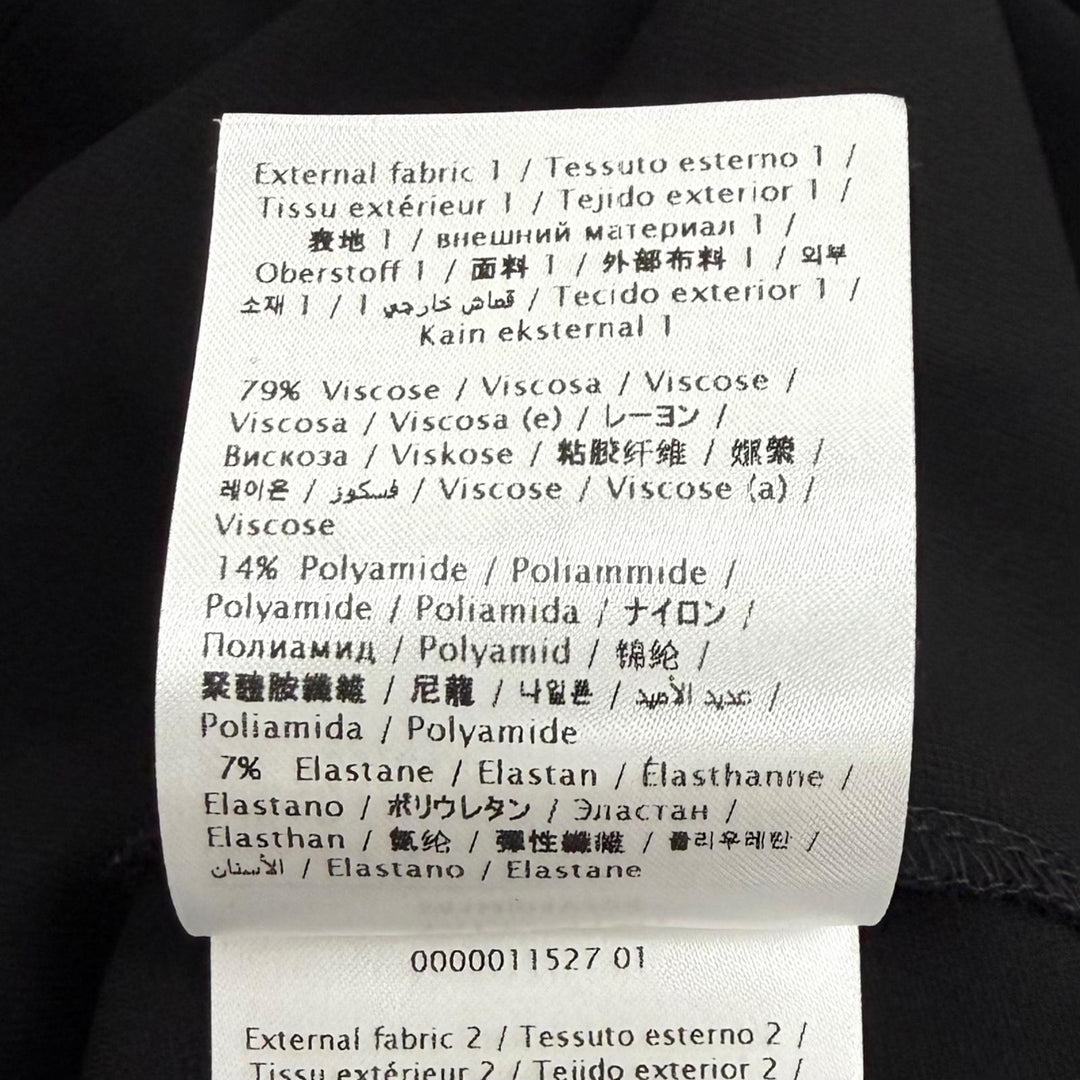 External fabric 1 / Tessuto esterno 1 /
Tissu extérieur 1 / Tejido exterior 1 /
表地 1 / внешний материал 1 /
Oberstoff 1 / 面料 1 / 外部布料 1 / 외부
소재 1 / قماش خارجي 1 / Tecido exterior 1 /
Kain eksternal 1
79% Viscose / Viscosa / Viscose /
Viscosa / Viscosa (e) / レーヨン /
Вискоза / Viskose / 粘胶纤维 / 嫘縈 /
레이온 / فسكوز / Viscose / Viscose (a) /
Viscose
14% Polyamide / Poliammide /
Polyamide / Poliamida / ナイロン /
Полиамид / Polyamid / 锦纶 /
聚醯胺纖維 / 尼龍 / 나일론 / عديد الأميد /
Poliamida / Polyamide
7% Elastane / Elastan / Élasthanne /
Elastano / ポリウレタン / Эластан /
Elasthan / 氨纶 / 彈性纖維 / 폴리우레탄 /
الأستان / Elastano / Elastane
0000011527 01
External fabric 2 / Tessuto esterno 2 /
Tissu extérieur 2 / Tejido exterior 2 /